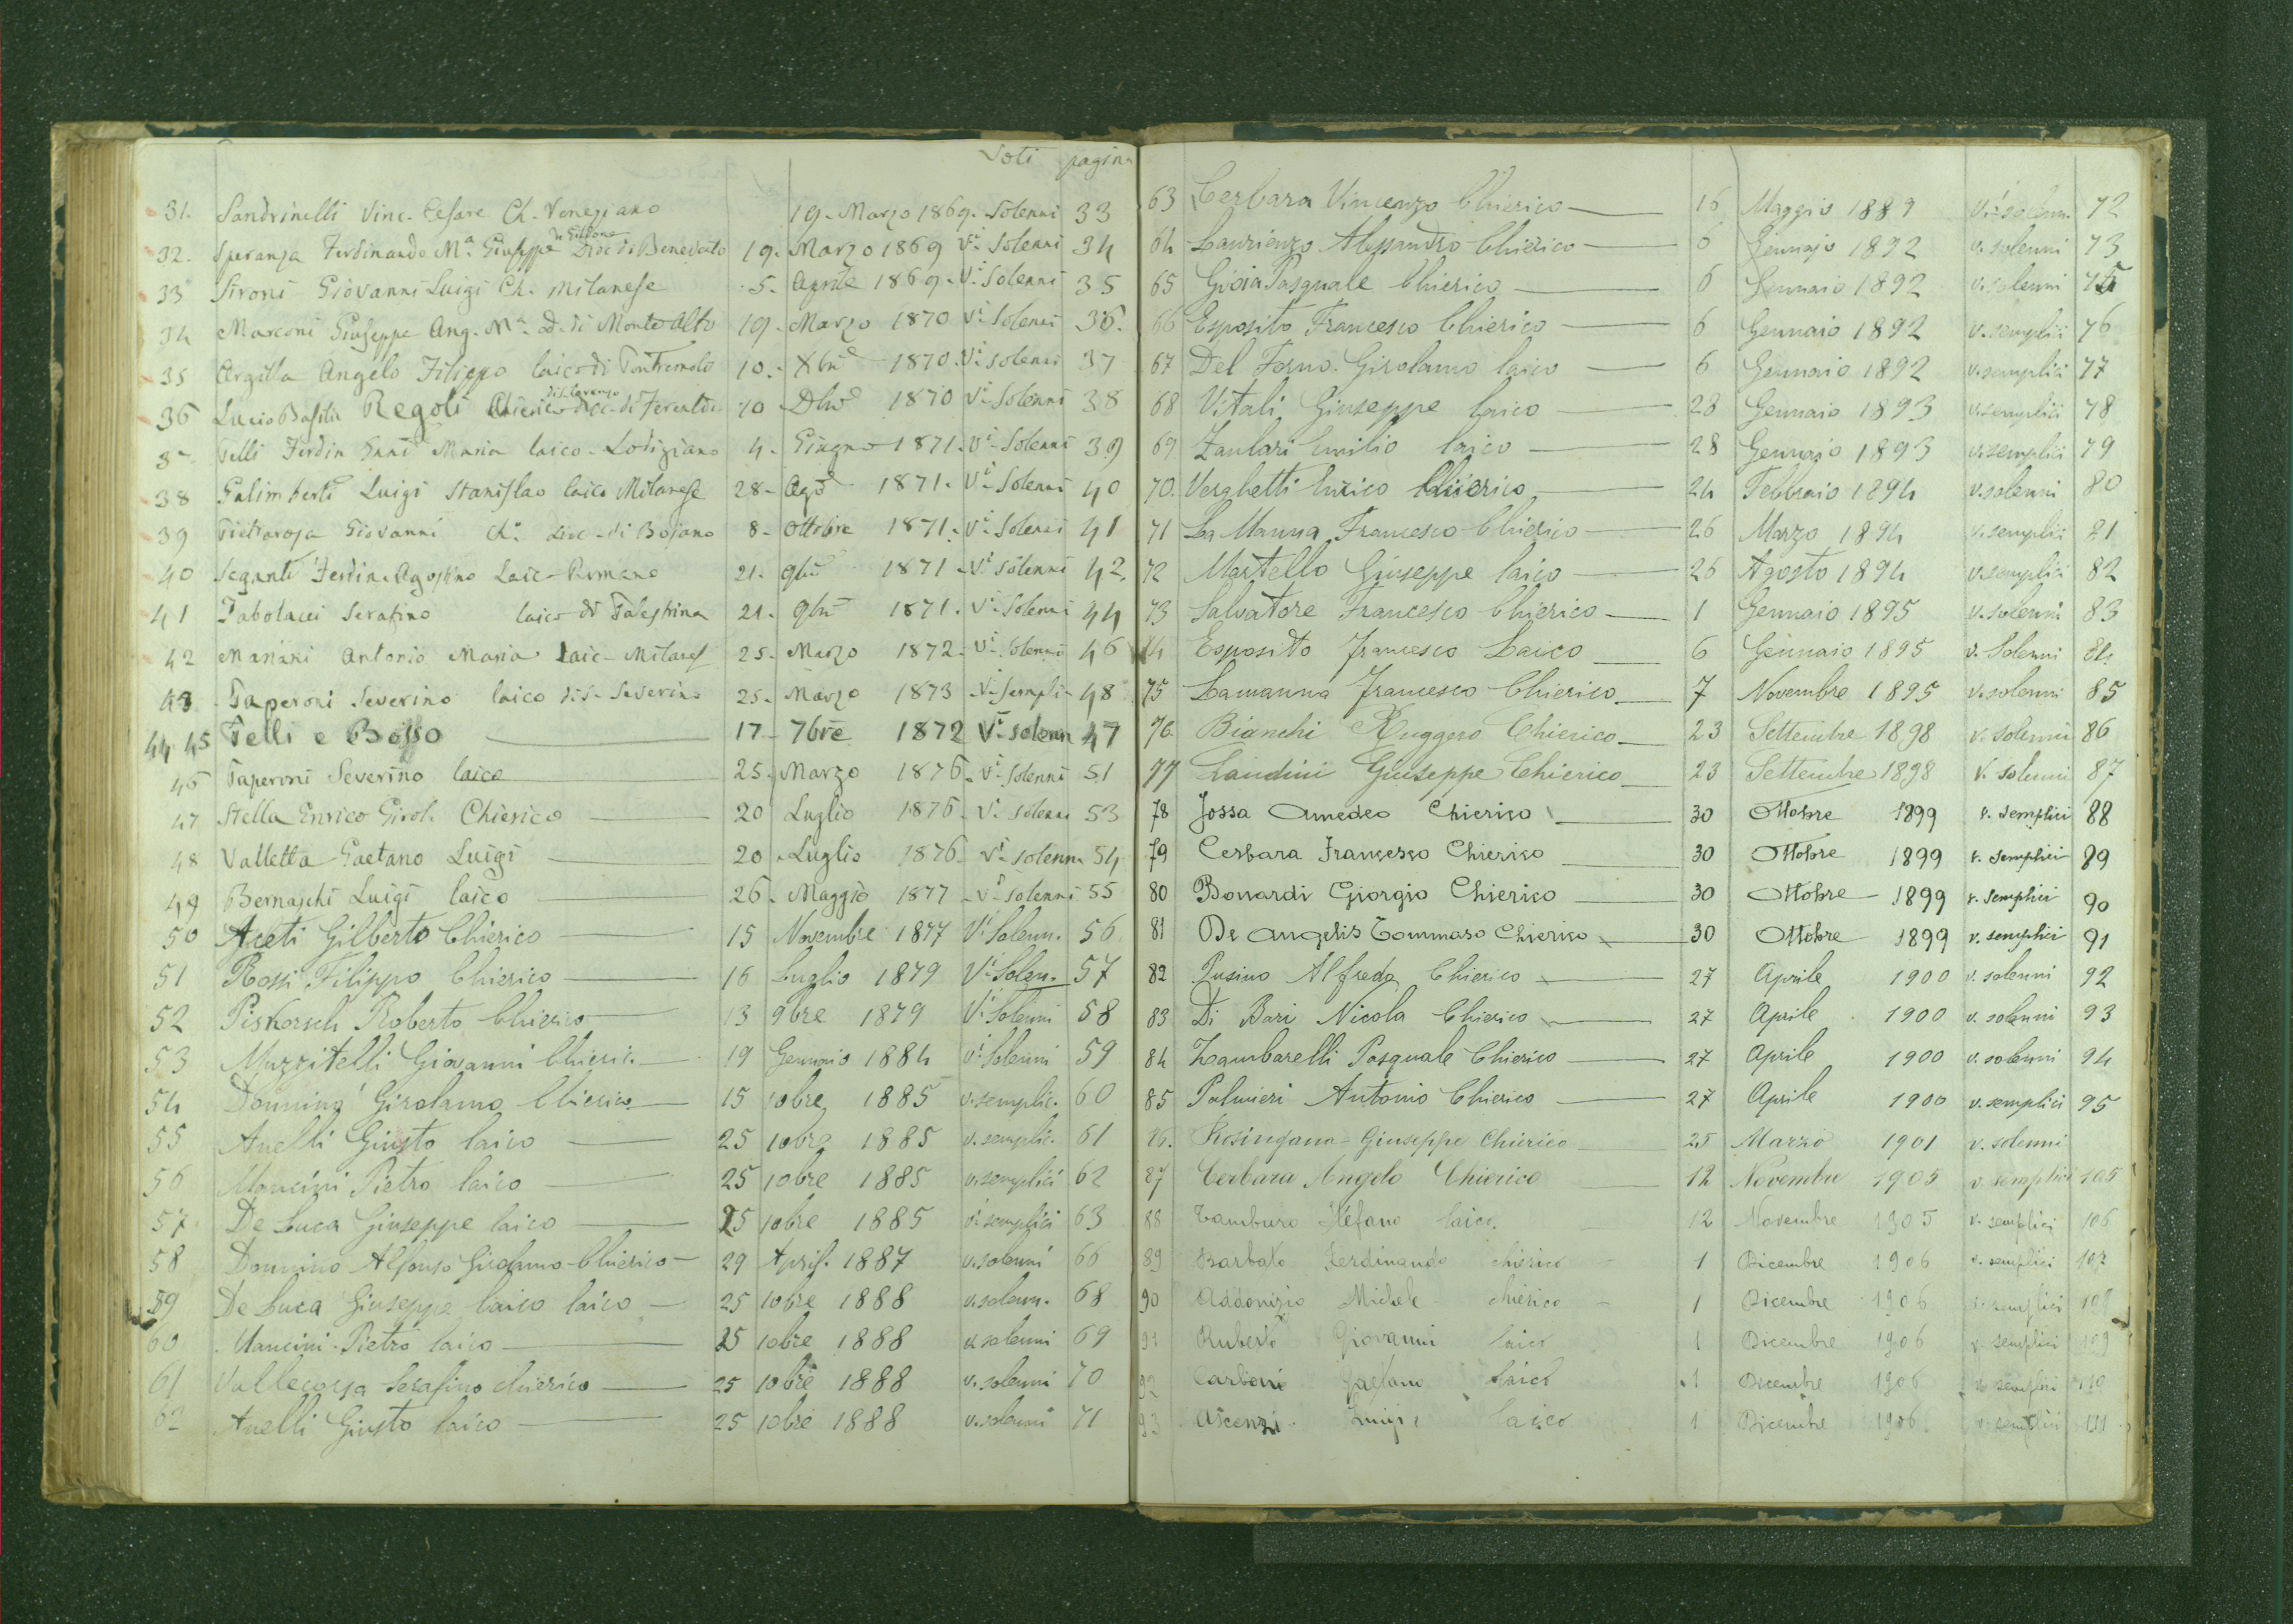 Voti pagina
31. Sandrinelli Vinc. Cesare Ch. Veneziano 19. Marzo 1869. Solenni 33
32. Speranza Ferdinando Mª. Giuseppe Dioc. di Benevento 19. Marzo 1869 Vi Solenni 34
33 Sironi Giovanni Luigi Ch. Milanese 5. Aprile 1869. Vi Solenni 35
34 Marconi Giuseppe Ang. Mª. D. di Monte Alto 19. Marzo 1870 Vi Solenni 36.
35 Argilla Angelo Filippo laico di Pontremolo 10. Xbre 1870. Vi Solenni 37
36 Lucio Basilio Regoli Chierico Dioc. di 10 1870 Vi Solenni 38
Felli Ferdin Maria laico Lodigiano 4. Giugno 1871. Vi Solenni 39
38 Galimberti Luigi Stanislao laico Milanese 28. Ago 1871. Vi Solenni 40
39 Pietrarosa Giovanni Ch. Dioc. di Bojano 8. Ottobre 1871. Vi Solenni 41
40 Seganti Ferdin. Agostino Laic. Romano 21. 9bre 1871. Vi Solenni 42.
41 Tabolacci Serafino laico di Palestrina 21. 9bre 1871. Vi Solenni 44
42 Mariani Antonio Maria Laic. Milanes 25. Marzo 1872. Vi Solenni 46
43 Paperoni Severino laico di S. Severino 25. Marzo 1873 Vi Sempli 48
44 45 Felli e Bosso 17 7bre 1872 Vi solenn 47
46 Paperoni Severino laico 25. Marzo 1876. Vi Solenni 51
47 Stella Enrico Girol. Chierico 20 Luglio 1876. Vi solenni 53
48 Valletta Gaetano Luigi 20. Luglio 1876. Vi solenn. 54
49 Bernaschi Luigi laico 26. Maggio 1877 Vi solenni 55
50 Aceti Gilberto Chierico 15 Novembre 1877 Vi Solenn. 56
51 Rossi Filippo Chierico 16 Luglio 1879 Vi Solen. 57
52 Piskorsch Roberto Chierico 13 9bre 1879 Vi Solenni 58
53 Muzzitelli Giovanni Chieric. 19 Gennaio 1884 Vi Solenni 59
54 Donnino Girolamo Chierico 15 10bre 1885 v. semplic. 60
55 Anelli Giusto laico 25 10bre 1885 v. semplic. 61
56 Mancini Pietro laico 25 10bre 1885 v. semplici 62
57 De Luca Giuseppe laico 25 10bre 1885 v. semplici 63
58 Donnino Alfonso Girolamo Chierico 29 April. 1887 v. solenni 66
59 De Luca Giuseppe laico laico 25 10bre 1888 v. solenn. 68
60 Mancini Pietro laico 25 10bre 1888 v. solenni 69
61 Vallecorsa Serafino chierico 25 10bre 1888 v. solenni 70
62 Anelli Giusto laico 25 10bre 1888 v. solenni 71
63 Cerbara Vincenzo Chierico 16 Maggio 1889 Vi solenn. 72
64 Laurienzo Alessandro Chierico 6 Gennajo 1892 v. solenni 73
65 Gioia Pasquale Chierico 6 Gennaio 1892 v. solenni 75
66 Esposito Francesco Chierico 6 Gennaio 1892 v. semplici 76
67 Del Forno Girolamo laico 6 Gennaio 1892 v. semplici 77
68 Vitali Giuseppe laico 28 Gennaio 1893 v. semplici 78
69 Zaulari Emilio laico 28 Gennajo 1893 v. semplici 79
70. Verghetti Enrico Chierico 24 Febbraio 1894 v. solenni 80
71 La Manna Francesco Chierico 26 Marzo 1894 v. semplici 81
72 Martello Giuseppe laico 26 Agosto 1894 v. semplici 82
73 Salvatore Francesco Chierico 1 Gennaio 1895 v. solenni 83
74 Esposito Francesco Laico 6 Gennaio 1895 v. Solenni 84
75 Lamanna Francesco Chierico 7 Novembre 1895 v. solenni 85
76 Bianchi Ruggero Chierico 23 Settembre 1898 v. solenni 86
77 Landini Giuseppe Chierico 23 Settembre 1898 v. solenni 87
78 Jossa Amedeo Chierico 30 Ottobre 1899 v. semplici 88
79 Cerbara Francesco Chierico 30 Ottobre 1899 v. semplici 89
80 Bonardi Giorgio Chierico 30 Ottobre 1899 v. semplici 90
81 De Angelis Tommaso Chierico 30 Ottobre 1899 v. semplici 91
82 Pusino Alfredo Chierico 27 Aprile 1900 v. solenni 92
83 Di Bari Nicola Chierico 27 Aprile 1900 v. solenni 93
84 Zambarelli Pasquale Chierico 27 Aprile 1900 v. solenni 94
85 Palmieri Antonio Chierico 27 Aprile 1900 v. semplici 95
86. Rosingana Giuseppe Chierico 25 Marzo 1901 v. solenni
87 Cerbara Angelo Chierico 12 Novembre 1905 v. semplici 105
88 Tamburo Stefano laico. 12 Novembre 1905 v. semplici 106
89 Barbato Ferdinando chierico 1 Dicembre 1906 v. semplici 107
90 Addonizio Michele chierico 1 Dicembre 1906 v. semplici 108
91 Ruberto Giovanni laico 1 Dicembre 1906 v. semplici 109
92 Carboni Gaetano laico 1 Dicembre 1906 v. semplici 110
93 Ascenzi Luigi laico 1 Dicembre 1906 v. semplici 111